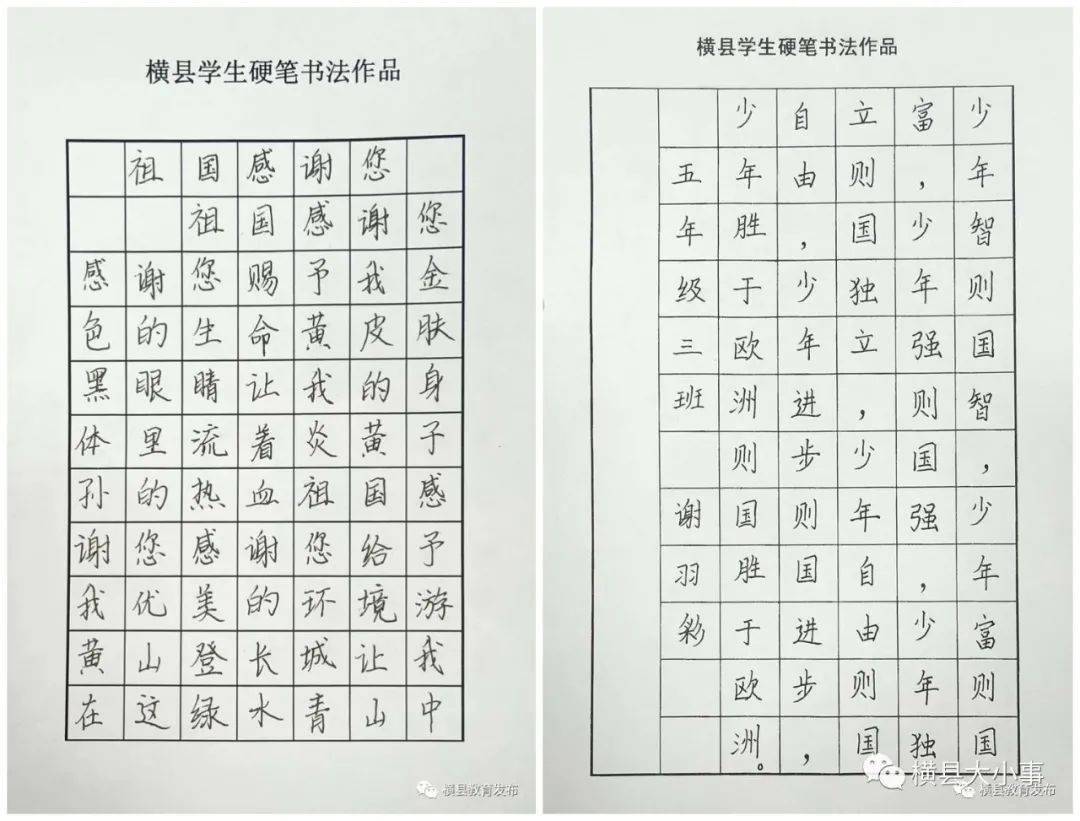 横县学生硬笔书法作品
祖国感谢您
祖国感谢您
感谢您赐予我金
色的生命黄皮肤
黑眼睛让我的身
体里流着炎黄子
孙的热血祖国感
谢您感谢您给予
我优美的环境游
黄山登长城让我
在这绿水青山中
横县教育发布
横县学生硬笔书法作品
少年智则国智，少年富则国
富，少年强则国强，少年独
立则国独立，少年自由则国
自由，少年进步则国进步，
少年胜于欧洲则国胜于欧洲。
五年级三班 谢羽彩
横县大小事
横县教育发布